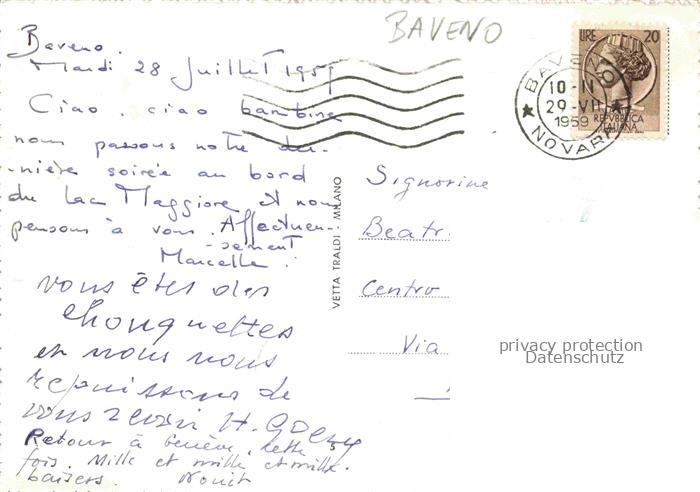 BAVENO
Baveno.
Mardi 28 Juillet 1959
Ciao, ciao bambine
nous passons notre der-
-nière soirée au bord
du Lac Maggiore et nous
pensons à vous. Affectueu-
-sement
Marcelle.
vous êtes des
chouquettes
et nous nous
rejouissons de
vous revoir H.
Retour à Genève, cette
fois. Mille et mille et mille
baisers.
VETTA TRALDI - MILANO
LIRE 20
REPVBBLICA
ITALIANA
BAVENO
10-11
29-VII
1959
NOVARA
Signorine
Beatr.
Centro
Via
privacy protection
Datenschutz